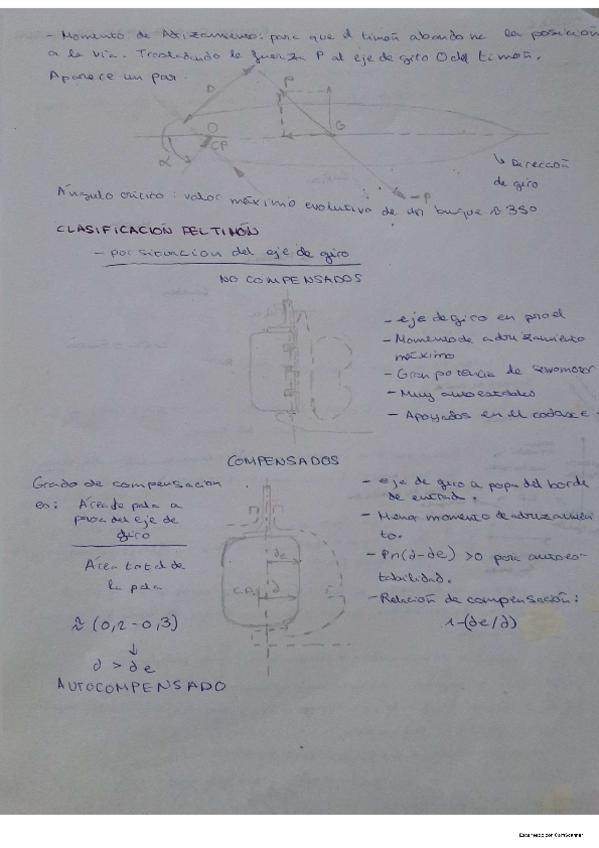 - Momento de Adrizamiento: para que el timón abandone la posición
a la vía. Trasladando la fuerza P al eje de giro O del timón.
Aparece un par.
D
P
O
CP
G
α
-P
↳ Dirección
de giro
Ángulo crítico: valor máximo evolutivo de un buque ≈ 35º
CLASIFICACION DEL TIMÓN
- por situación del eje de giro
NO COMPENSADOS
- eje de giro en proa
- Momento de adrizamiento
máximo
- Gran potencia de servomotor
- Muy autoestables
- Apoyados en el codaste.
COMPENSADOS
Grado de compensacion
es: Área de pala a
proa del eje de
giro
Área total de
la pala
≈ (0,2-0,3)
↓
d > de
AUTOCOMPENSADO
de
C.P.
d
- eje de giro a popa del borde
de entrada.
- Menor momento de adrizamien
to.
- Pn(d-de) >0 para autoes-
tabilidad.
- Relación de compensación:
1-(de/d)
Escaneado con CamScanner